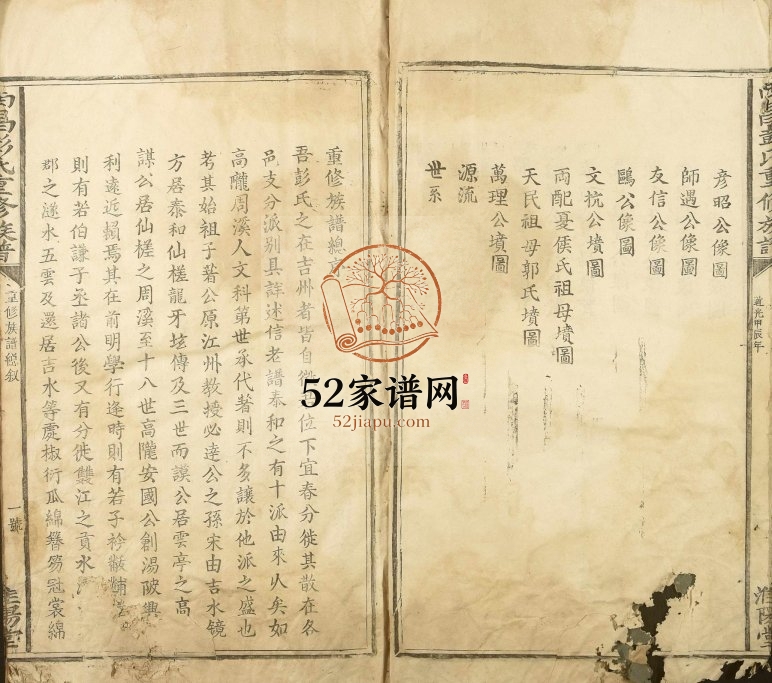 彦昭公像圖
師遇公像圖
友信公像圖
鷗公像圖
文杭公墳圖
兩配憂侯氏祖母墳圖
天民祖母郭氏墳圖
萬理公墳圖
源流
世系
道光甲辰年
淮陽堂
重修族譜總
吾彭氏之在吉州者皆自徵位下宜春分徙其散在各
邑支分派别具詳述信老譜泰和之有十派由來久矣如
高隴周溪人文科第世承代著則不多讓於他派之盛也
考其始祖子菪公原江州教授必達公之孫宋由吉水镜
方居泰和仙槎龍牙埈傳及三世而謨公居雲亭之高
謀公居仙槎之周溪至十八世高隴安國公創湯陂興
利遠近賴焉其在前明學行逢時則有若子衿黻輔
則有若伯謙子丞諸公後又有分徙雙江之貢水
郡之遂水五雲及還居吉水等處椒衍瓜綿簪笏冠裳綿
重修族譜總叙
一號
52家谱网
52jiapu.com